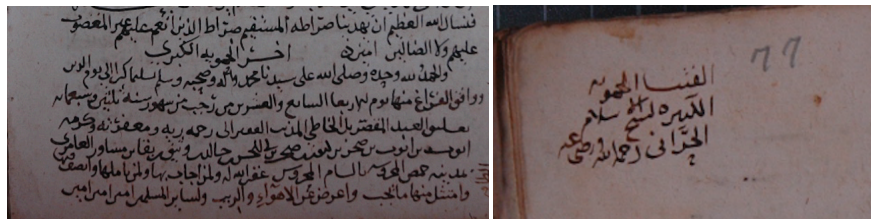 فنسال الله العظيم ان يهدينا صراطه المستقيم صراط الذين انعم عليهم غير المغضوب
عليهم ولا الضالين امين اخر الحموية الكبرى
والحمد لله وحده وصلى الله على سيدنا محمد واله وصحبه وسلم تسليما كثيرا الى يوم الدين
ووافق الفراغ منها يوم الاربعا السابع والعشرين من رجب من شهور سنة ثلثين وسبعمائه
بعلم العبد المفتقر الخاطي المذنب الفقير الى رحمة ربه ومغفرته وكرمه
ايوب بن ايوب بن صخر بن ايوب بن صخر بن مساور العامري
بمدينة حمص المحروسة بالشام المحروس غفر الله له ولمن اجاب بها ولمن تاملها وانصف
وامتثل منها ما يجب واعرض عن الاهواء والريب ولسائر المسلمين امين امين امين
77
الفتيا الحموية
الكبيرة لشيخ الاسلام
الحراني رحمه الله ورضي عنه